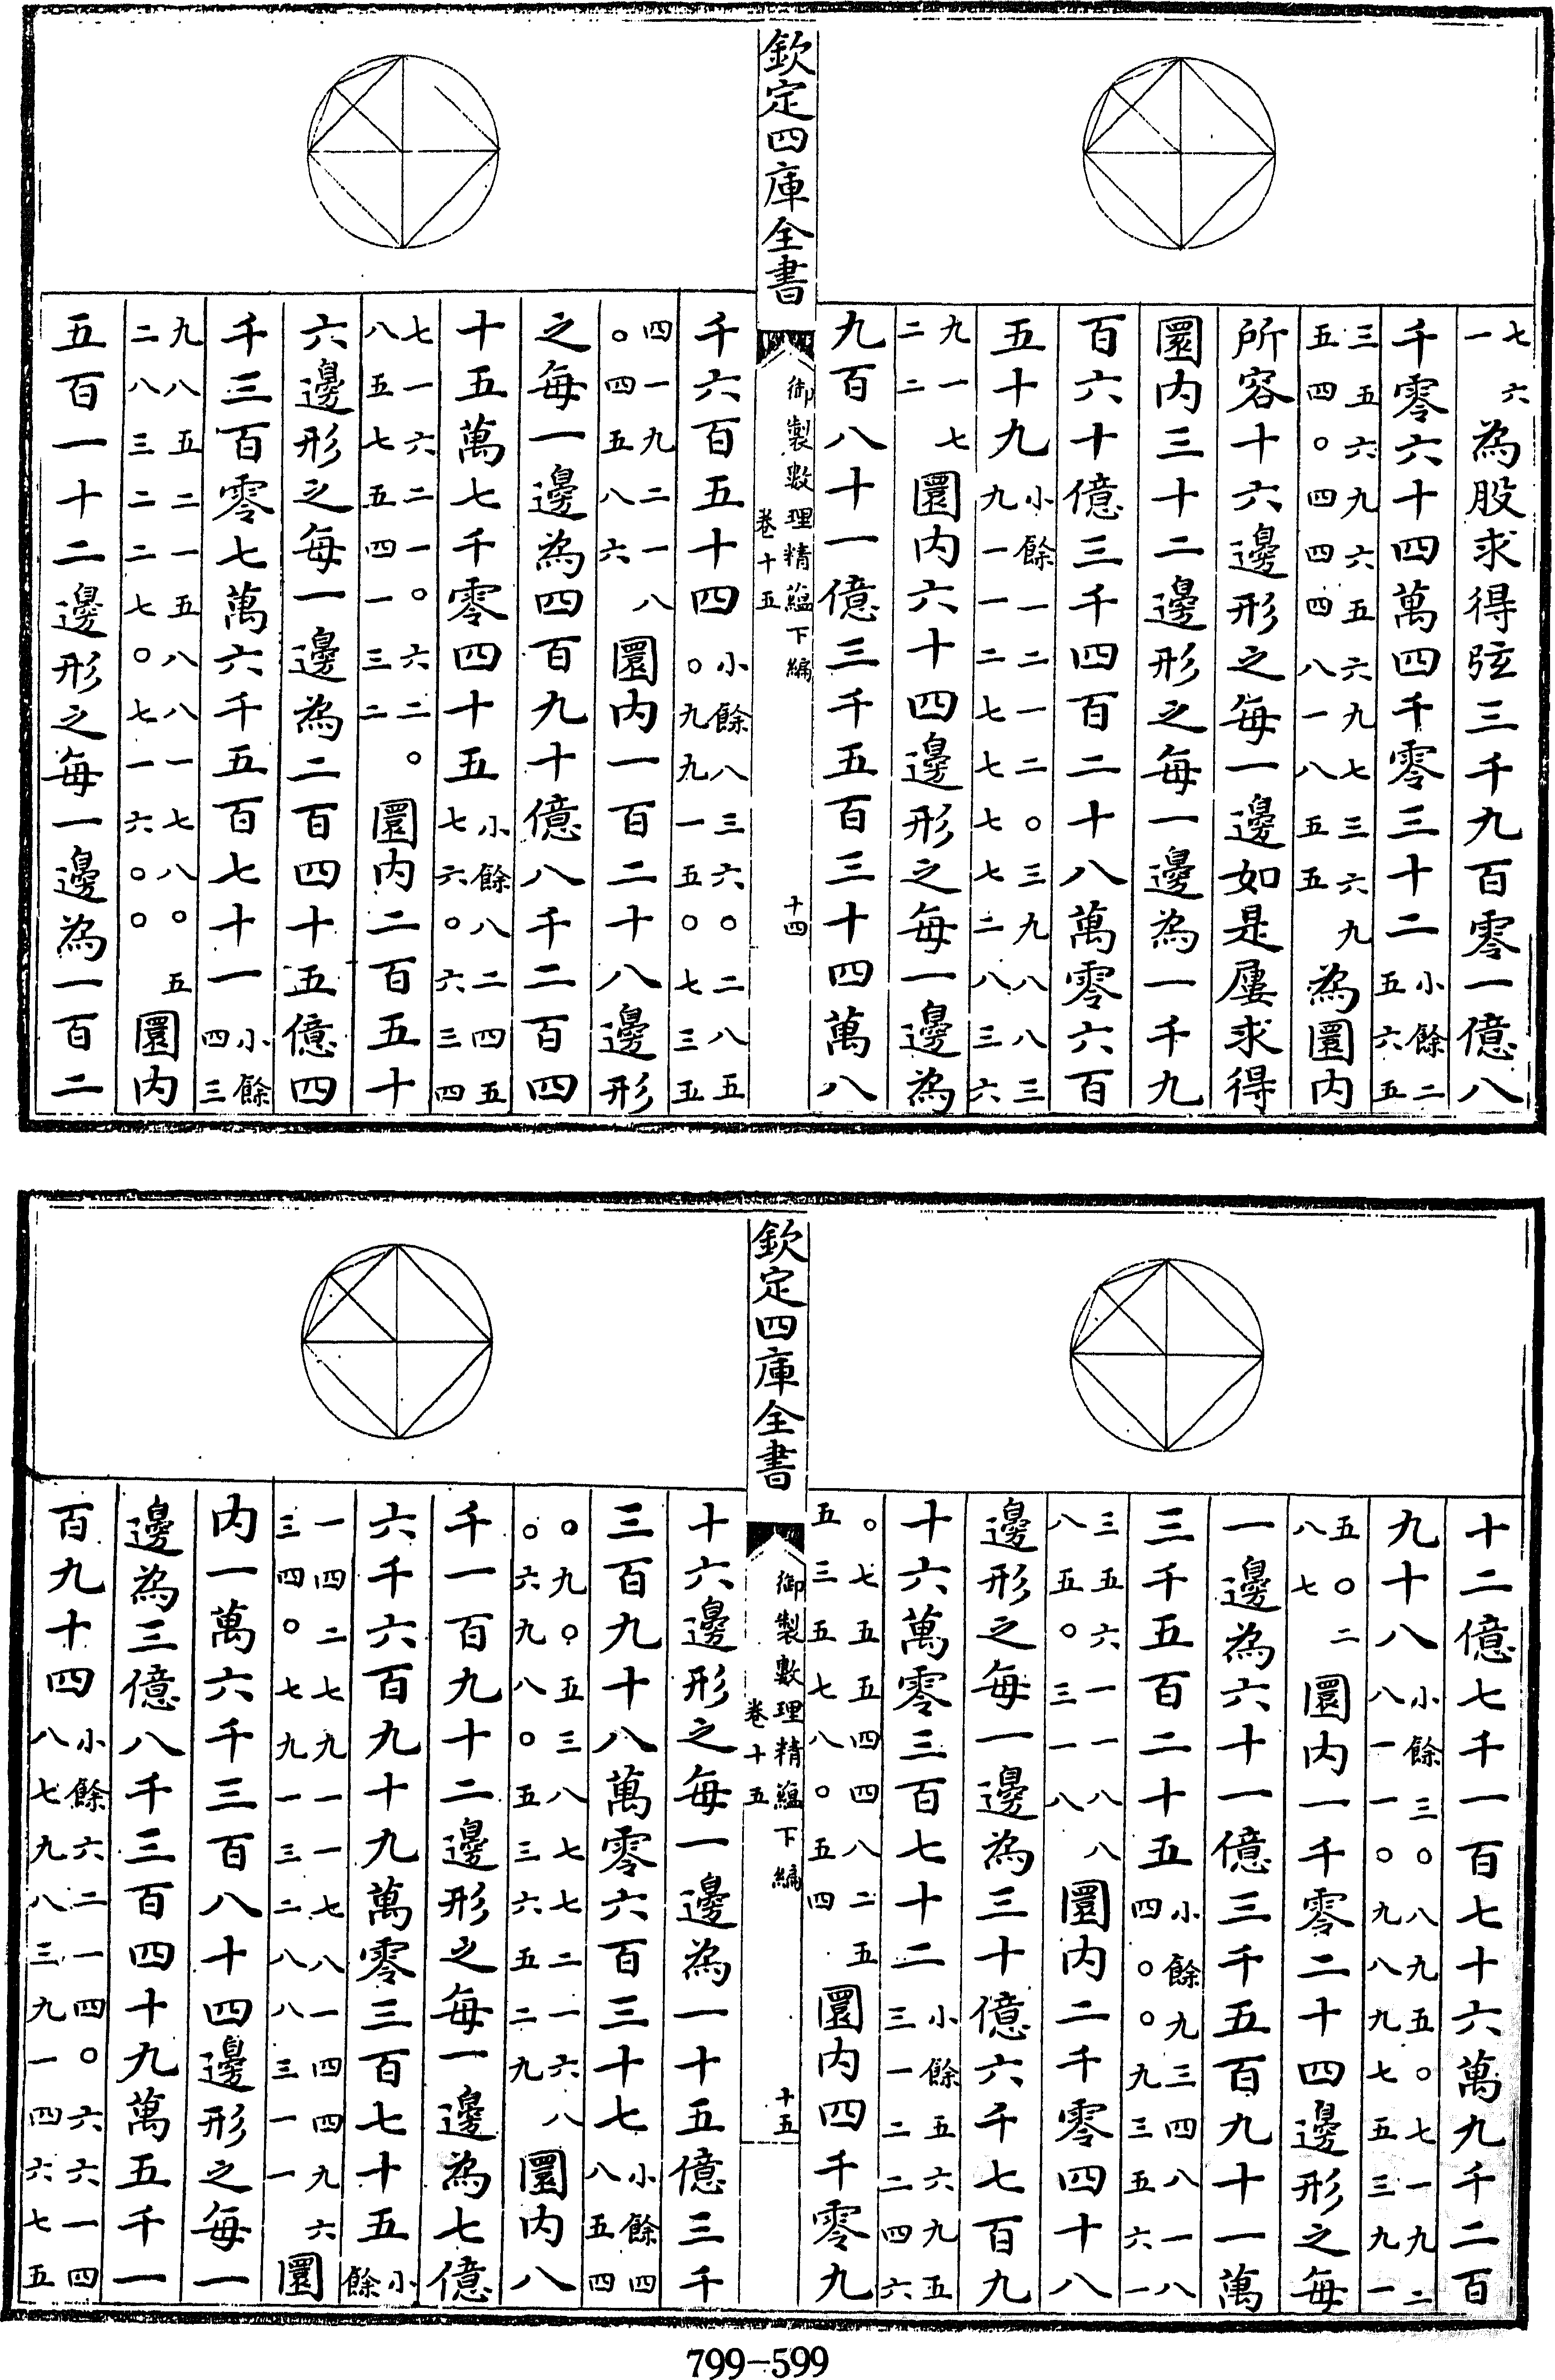 七六一為股求得弦三千九百零一億八
千零六十四萬四千零三十二小餘二五六五
三五六九六五六九七三六九五四〇四四四八一八五五為圜内
所容十六邊形之每一邊如是屢求得
圜内三十二邊形之每一邊為一千九
百六十億三千四百二十八萬零六百
五十九小餘一二一二〇三九八八三九一一二七七七二八三六
九一七二二圜内六十四邊形之每一邊為
九百八十一億三千五百三十四萬八
欽定四庫全書
御製數理精藴下編
卷十五
十四
千六百五十四小餘八三六〇二八五〇九九一五〇七三五
四一九二一八〇四五八六圜内一百二十八邊形
之每一邊為四百九十億八千二百四
十五萬七千零四十五小餘八二四五七六〇六三四
七一六二一〇六二〇八五七五四一三二圜内二百五十
六邊形之每一邊為二百四十五億四
千三百零七萬六千五百七十一小餘四三
九八五二一五八八一七八〇五二八三二二七〇七一六〇〇圜内
五百一十二邊形之每一邊為一百二
十二億七千一百七十六萬九千二百
九十八小餘三〇八九五〇七一九二八一一〇九八九七五三九一
五〇二八七圜内一千零二十四邊形之每
一邊為六十一億三千五百九十一萬
三千五百二十五小餘九三四八一八四〇〇九三五六一
三五六一一八八八五〇三一八圜内二千零四十八
邊形之每一邊為三十億六千七百九
十六萬零三百七十二小餘五六九五三一二二四六
〇七五五四四八二五五三五七八〇五四圜内四千零九
欽定四庫全書
御製數理精藴下編
卷十五
十五
十六邊形之每一邊為一十五億三千
三百九十八萬零六百三十七小餘四八五四
〇九〇五三八七七二一六八〇六九八〇五三六五二九圜内八
千一百九十二邊形之每一邊為七億
六千六百九十九萬零三百七十五小餘
一四二七九一一七八一四四九六三四〇七九一三二八八三一一圜
内一萬六千三百八十四邊形之每一
邊為三億八千三百四十九萬五千一
百九十四小餘六二一四〇六六一四八七九八三九一四六七五
799-599